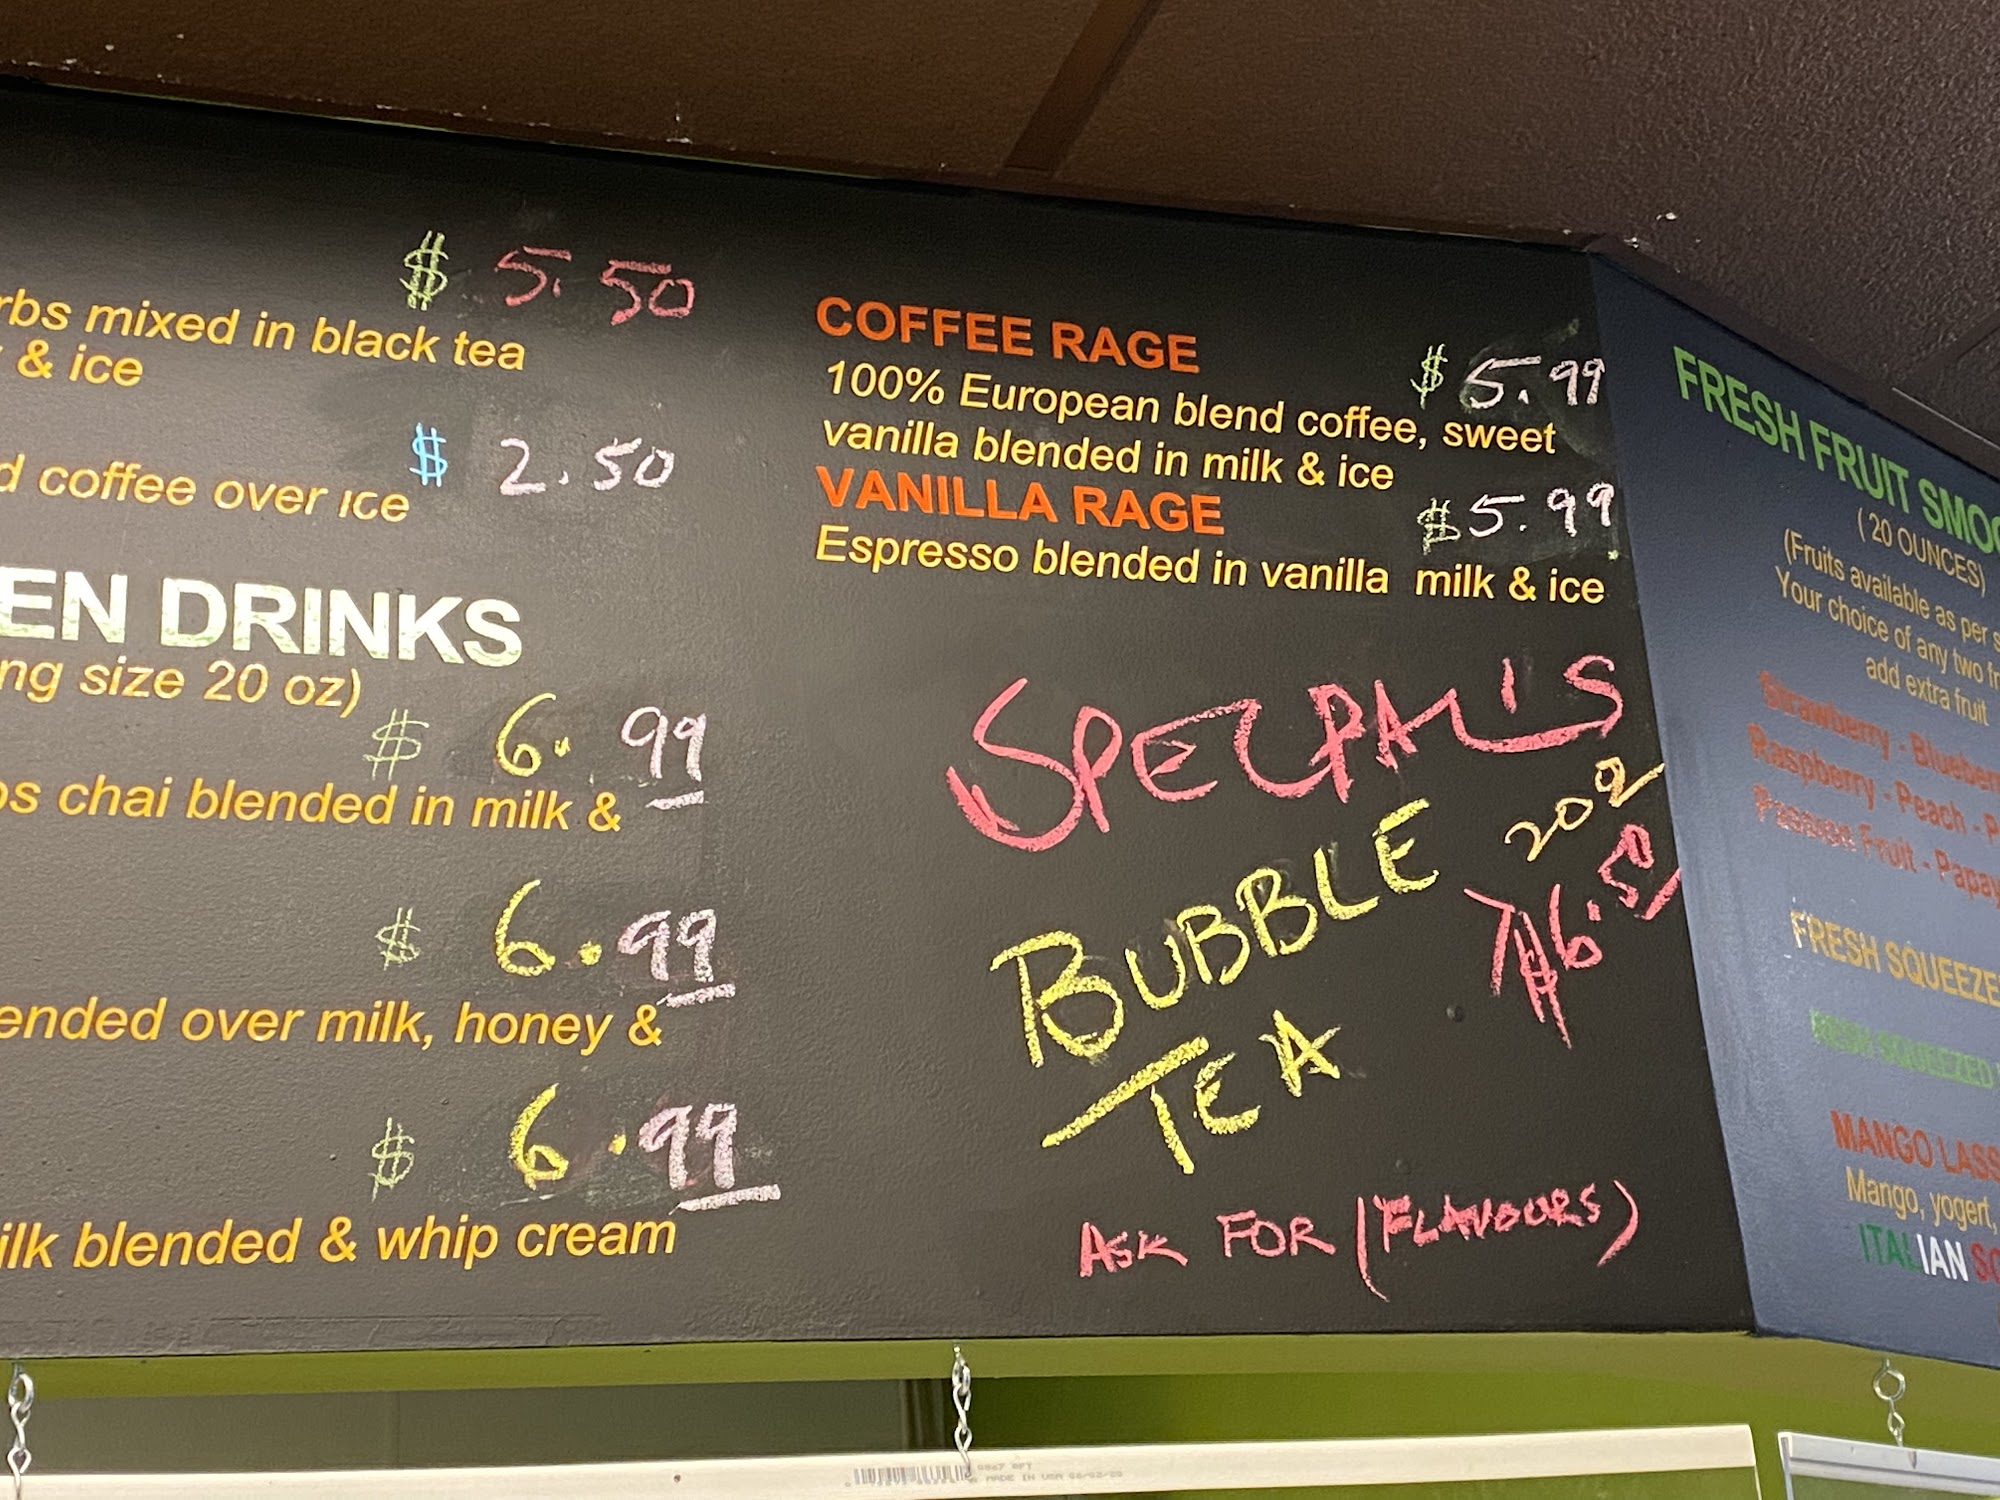 $ 5.50
rbs mixed in black tea
& ice
$ 2.50
d coffee over ice
EN DRINKS
ng size 20 oz)
$ 6.99
os chai blended in milk &
$ 6.99
ended over milk, honey &
$ 6.99
ilk blended & whip cream
COFFEE RAGE
$ 5.99
100% European blend coffee, sweet
vanilla blended in milk & ice
VANILLA RAGE
$5.99
Espresso blended in vanilla milk & ice
SPECIALS
BUBBLE
TEA
$6.50
ASK FOR (FLAVOURS)
FRESH FRUIT SMOO
( 20 OUNCES)
(Fruits available as per s
Your choice of any two fr
add extra fruit
Strawberry - Blueberr
Raspberry - Peach - P
Passion Fruit - Papay
FRESH SQUEEZE
FRESH SQUEEZED
MANGO LASS
Mango, yogert,
ITALIAN SO
MADE IN USA